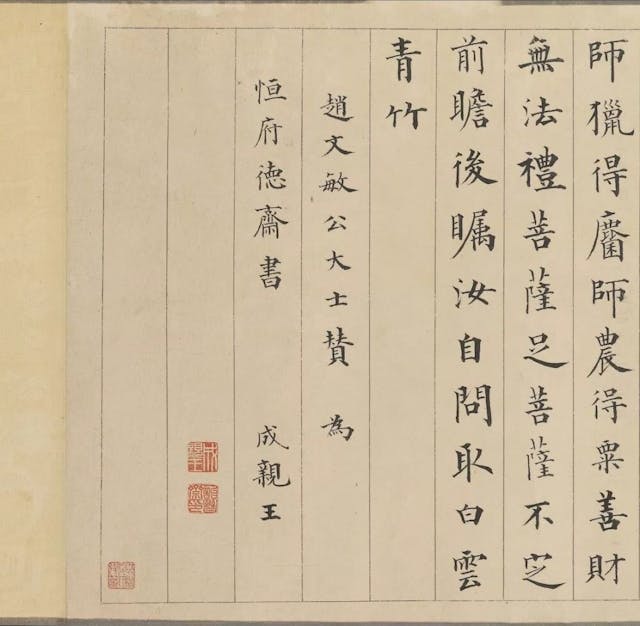 師獵得麕師農得粟善財
無法禮菩薩足菩薩不㝎
前瞻後矚汝自問取白雲
青竹
趙文敏公大士賛 為
恒府德齋書 成親王